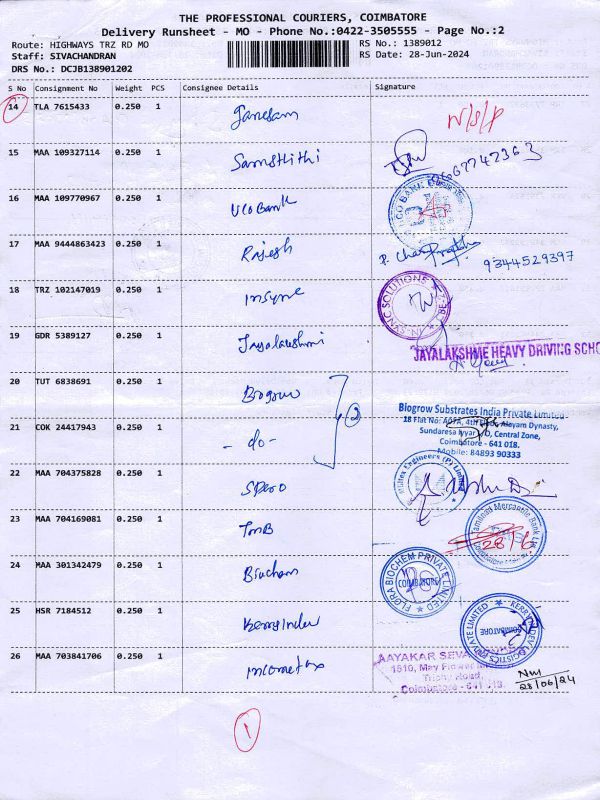 THE PROFESSIONAL COURIERS, COIMBATORE
Delivery Runsheet - MO - Phone No.:0422-3505555 - Page No.:2
Route: HIGHWAYS TRZ RD MO
RS No.: 1389012
Staff: SIVACHANDRAN
RS Date: 28-Jun-2024
DRS No.: DCJB138901202
S No Consignment No Weight PCS Consignee Details Signature
14 TLA 7615433 0.250 1 Ganesam
15 MAA 109327114 0.250 1
16 MAA 109770967 0.250 1 UCO Bank
UCO BANK
17 MAA 9444863423 0.250 1 Rajesh
9344529397
18 TRZ 102147019 0.250 1 Insync
IN-SYNC SOLUTIONS
19 GDR 5389127 0.250 1 Jayalakshmi
JAYALAKSHME HEAVY DRIVING SCHO
20 TUT 6838691 0.250 1 Biogrow
2
21 COK 24417943 0.250 1 - do -
Biogrow Substrates India Private Limited
Dynasty,
Central Zone,
Coimbatore - 641 018.
Mobile: 84893 90333
22 MAA 704375828 0.250 1 Spero
Engineers (P) Limited
23 MAA 704169081 0.250 1 TMB
Tamilnad Mercantile Bank Ltd.
28/6
24 MAA 301342479 0.250 1 Biochem
FLORA BIOCHEM PRIVATE LIMITED
COIMBATORE
25 HSR 7184512 0.250 1 Kerry Indev
KERRY INDEV LOGISTICS PRIVATE LIMITED
COIMBATORE
26 MAA 703841706 0.250 1 Incometax
AAYAKAR SEVA
1510, May Flower
Trichy Road,
Coimbatore - 641
28/06/24
1